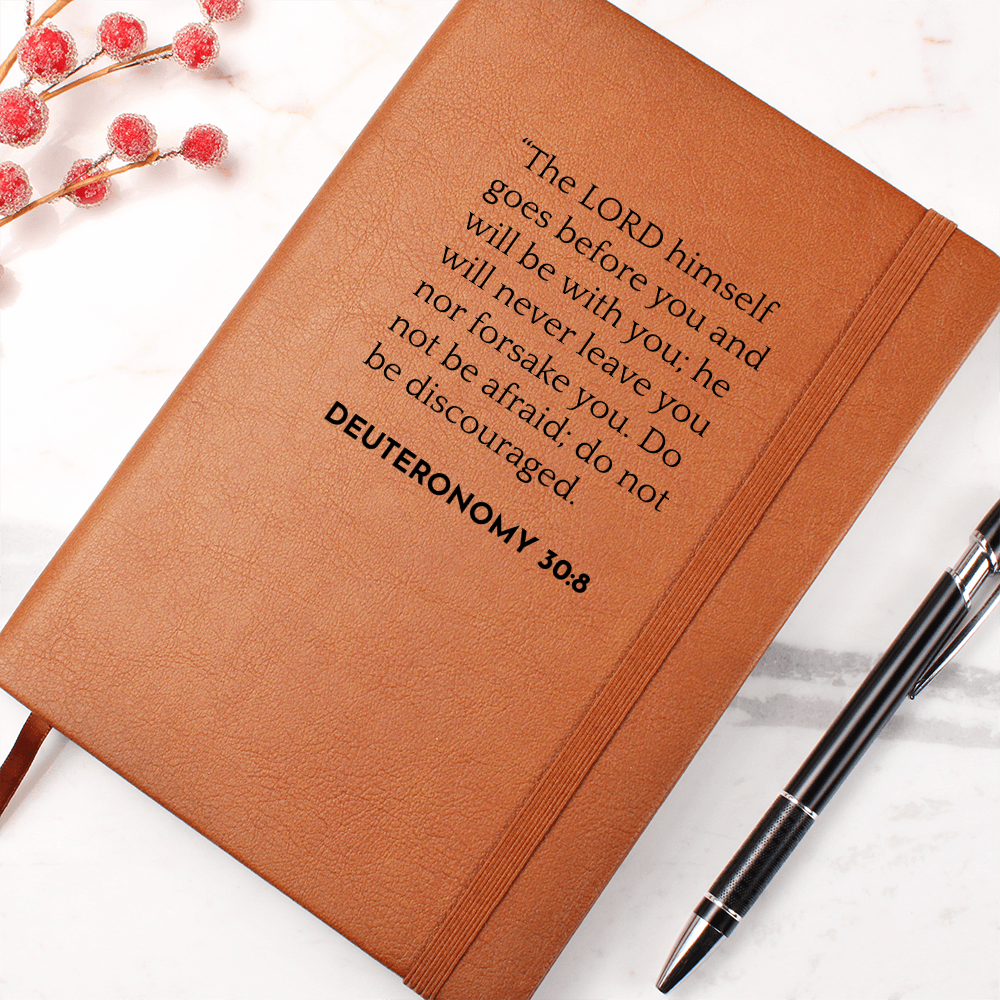 “The LORD himself
goes before you and
will be with you; he
will never leave you
nor forsake you. Do
not be afraid; do not
be discouraged.
DEUTERONOMY 30:8